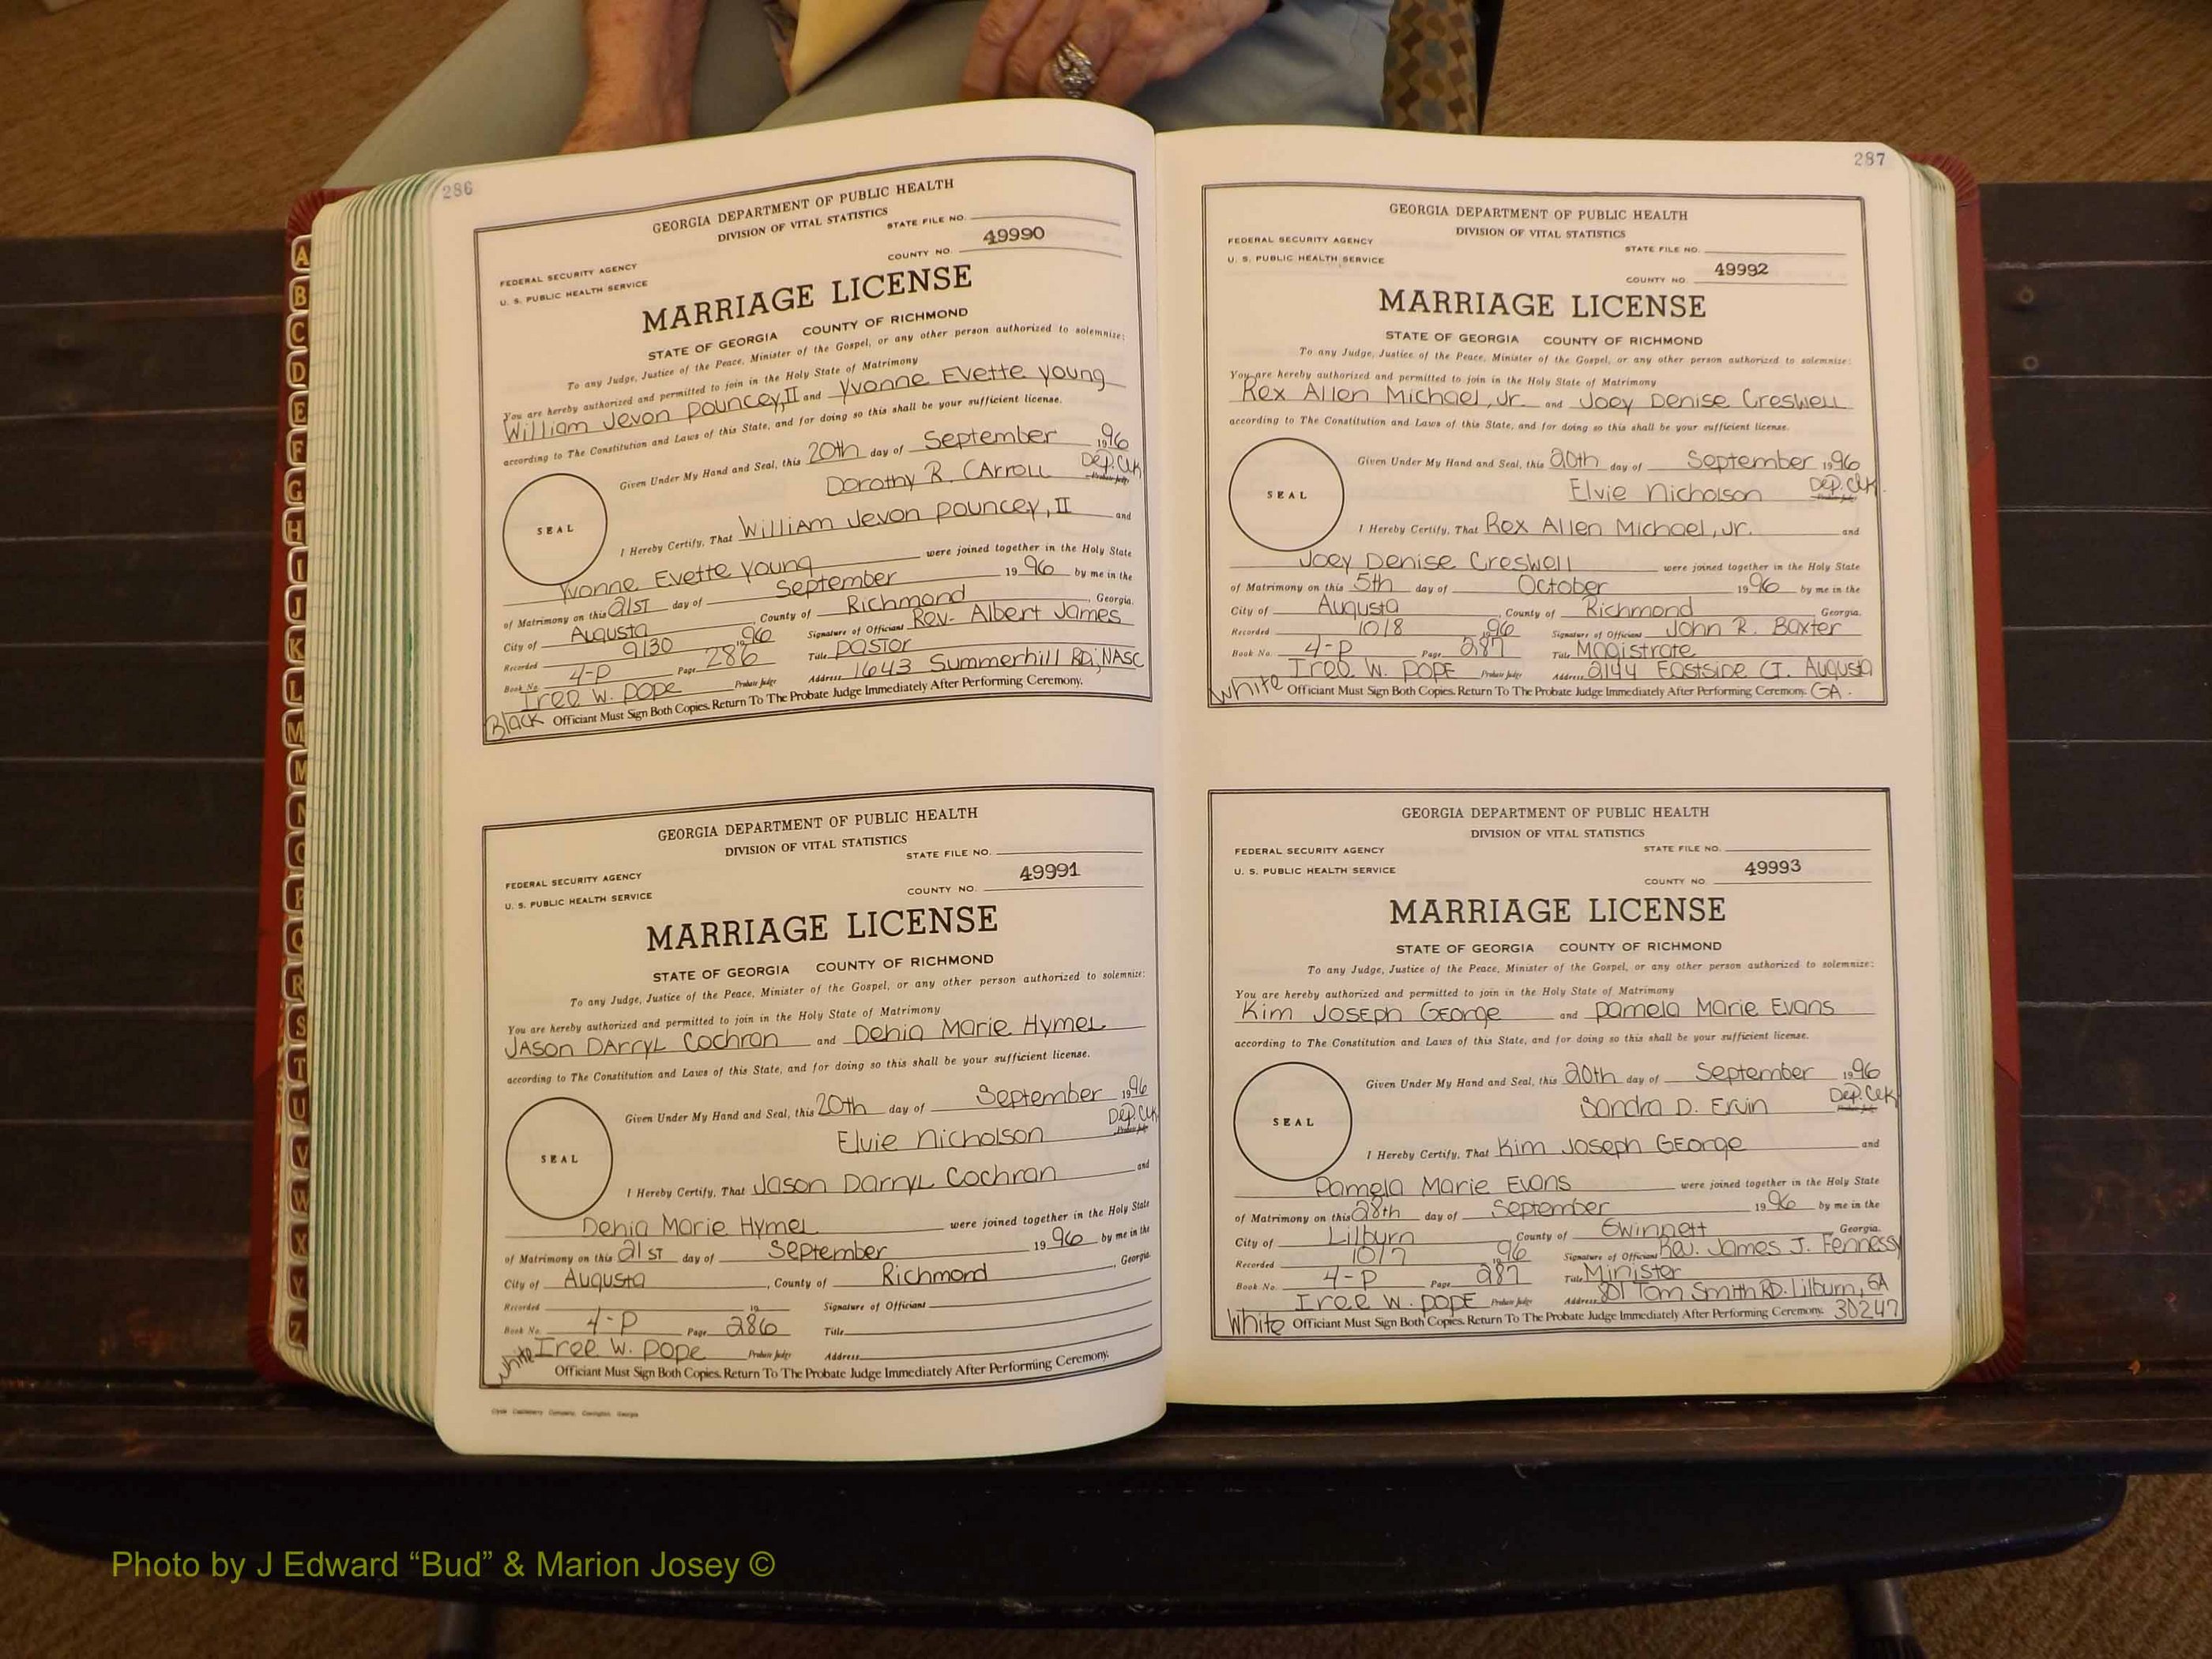 286
GEORGIA DEPARTMENT OF PUBLIC HEALTH
DIVISION OF VITAL STATISTICS
STATE FILE NO.
49990
COUNTY NO.
FEDERAL SECURITY AGENCY
U. S. PUBLIC HEALTH SERVICE
MARRIAGE LICENSE
STATE OF GEORGIA COUNTY OF RICHMOND
To any Judge, Justice of the Peace, Minister of the Gospel, or any other person authorized to solemnize:
You are hereby authorized and permitted to join in the Holy State of Matrimony
William Jevon Pouncey, II and Yvonne Evette Young
according to The Constitution and Laws of this State, and for doing so this shall be your sufficient license.
Given Under My Hand and Seal, this 20th day of September 1996
Dorothy R. Carroll Dep. Clk
Probate Judge
SEAL
I Hereby Certify, That William Jevon Pouncey, II and
Yvonne Evette Young were joined together in the Holy State
of Matrimony on this 21st day of September 1996 by me in the
City of Augusta, County of Richmond, Georgia.
Recorded 9/30 1996 Signature of Officiant Rev- Albert James
Book No. 4-P Page 286 Title Pastor
Iree W. Pope Probate Judge Address 1643 Summerhill RD; NASC
Black Officiant Must Sign Both Copies. Return To The Probate Judge Immediately After Performing Ceremony.
GEORGIA DEPARTMENT OF PUBLIC HEALTH
DIVISION OF VITAL STATISTICS
STATE FILE NO.
49991
COUNTY NO.
FEDERAL SECURITY AGENCY
U. S. PUBLIC HEALTH SERVICE
MARRIAGE LICENSE
STATE OF GEORGIA COUNTY OF RICHMOND
To any Judge, Justice of the Peace, Minister of the Gospel, or any other person authorized to solemnize:
You are hereby authorized and permitted to join in the Holy State of Matrimony
Jason Darryl Cochran and Denia Marie Hymel
according to The Constitution and Laws of this State, and for doing so this shall be your sufficient license.
Given Under My Hand and Seal, this 20th day of September 1996
Elvie Nicholson Dep. Clk
Probate Judge
SEAL
I Hereby Certify, That Jason Darryl Cochran and
Denia Marie Hymel were joined together in the Holy State
of Matrimony on this 21st day of September 1996 by me in the
City of Augusta, County of Richmond, Georgia.
Recorded 19 Signature of Officiant
Book No. 4-P Page 286 Title
Iree W. Pope Probate Judge Address
White Officiant Must Sign Both Copies. Return To The Probate Judge Immediately After Performing Ceremony.
287
GEORGIA DEPARTMENT OF PUBLIC HEALTH
DIVISION OF VITAL STATISTICS
FEDERAL SECURITY AGENCY
STATE FILE NO.
U. S. PUBLIC HEALTH SERVICE
COUNTY NO. 49992
MARRIAGE LICENSE
STATE OF GEORGIA COUNTY OF RICHMOND
To any Judge, Justice of the Peace, Minister of the Gospel, or any other person authorized to solemnize:
You are hereby authorized and permitted to join in the Holy State of Matrimony
Rex Allen Michael, Jr. and Joey Denise Creswell
according to The Constitution and Laws of this State, and for doing so this shall be your sufficient license.
Given Under My Hand and Seal, this 20th day of September 1996
Elvie Nicholson Dep. Clk.
Probate Judge
SEAL
I Hereby Certify, That Rex Allen Michael, Jr. and
Joey Denise Creswell were joined together in the Holy State
of Matrimony on this 5th day of October 1996 by me in the
City of Augusta, County of Richmond Georgia.
Recorded 10/8 1996 Signature of Officiant John R. Baxter
Book No. 4-P Page 287 Title Magistrate
Iree W. Pope Probate Judge Address 2144 Eastside Ct. Augusta
White Officiant Must Sign Both Copies. Return To The Probate Judge Immediately After Performing Ceremony. GA.
GEORGIA DEPARTMENT OF PUBLIC HEALTH
DIVISION OF VITAL STATISTICS
FEDERAL SECURITY AGENCY
STATE FILE NO.
U. S. PUBLIC HEALTH SERVICE
COUNTY NO 49993
MARRIAGE LICENSE
STATE OF GEORGIA COUNTY OF RICHMOND
To any Judge, Justice of the Peace, Minister of the Gospel, or any other person authorized to solemnize:
You are hereby authorized and permitted to join in the Holy State of Matrimony
Kim Joseph George and Pamela Marie Evans
according to The Constitution and Laws of this State, and for doing so this shall be your sufficient license.
Given Under My Hand and Seal, this 20th day of September 1996
Sandra D. Ervin Dep. Clk
Probate Judge
SEAL
I Hereby Certify, That Kim Joseph George and
Pamela Marie Evans were joined together in the Holy State
of Matrimony on this 28th day of September 1996 by me in the
City of Lilburn County of Gwinnett Georgia.
Recorded 10/7 1996 Signature of Officiant Rev. James J. Fennessy
Book No. 4-P Page 287 Title Minister
Iree W. Pope Probate Judge Address 801 Tom Smith RD. Lilburn, GA
White Officiant Must Sign Both Copies. Return To The Probate Judge Immediately After Performing Ceremony. 30247
A
B
C
D
E
F
G
H
I
J
K
L
M
M
N
O
P
Q
R
S
T
U
V
W
X
Y
Z
Photo by J Edward “Bud” & Marion Josey ©